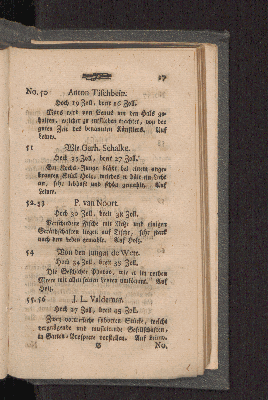 17
No. 50 Anton Tischbein.
Hoch 19 Zoll, breit 16 Zoll.
Mars wird von Venus um den Hals ge-
halten, welcher zu entfliehen trachtet, von der
guten Zeit des benannten Künstlers. Auf
Leinw.
51 Wie Garh. Schalke.
Hoch 33 Zoll, breit 27 Zoll.
Ein Knabe bläst bei einem
Stück Holz, welches er in der
sehr lebhaft und schön gemahlt. Auf
Leinw.
52. 53 P. van Noort.
Hoch 30 Zoll, breit 38 Zoll.
Verschiedene Fische mit Netz und einigen
Geräthschaften liegen auf Tische, sehr
nach dem Leben gemahlt. Auf Holz.
54 Von den jungen de Wett.
Hoch 24 Zoll, breit 35 Zoll.
Die Geschichte Pharao, wie er im rothen
Meere mit allen seinen Leuten umkömmt. Auf
Holz.
55. 56 J. L. Valdemar.
Hoch 27 Zoll, breit 45 Zoll.
Zwey Stücke, welche
vergnügende und musicirende Gesellschaften,
in Garten-Prospecte vorstellen. Auf Leinw.
B No.